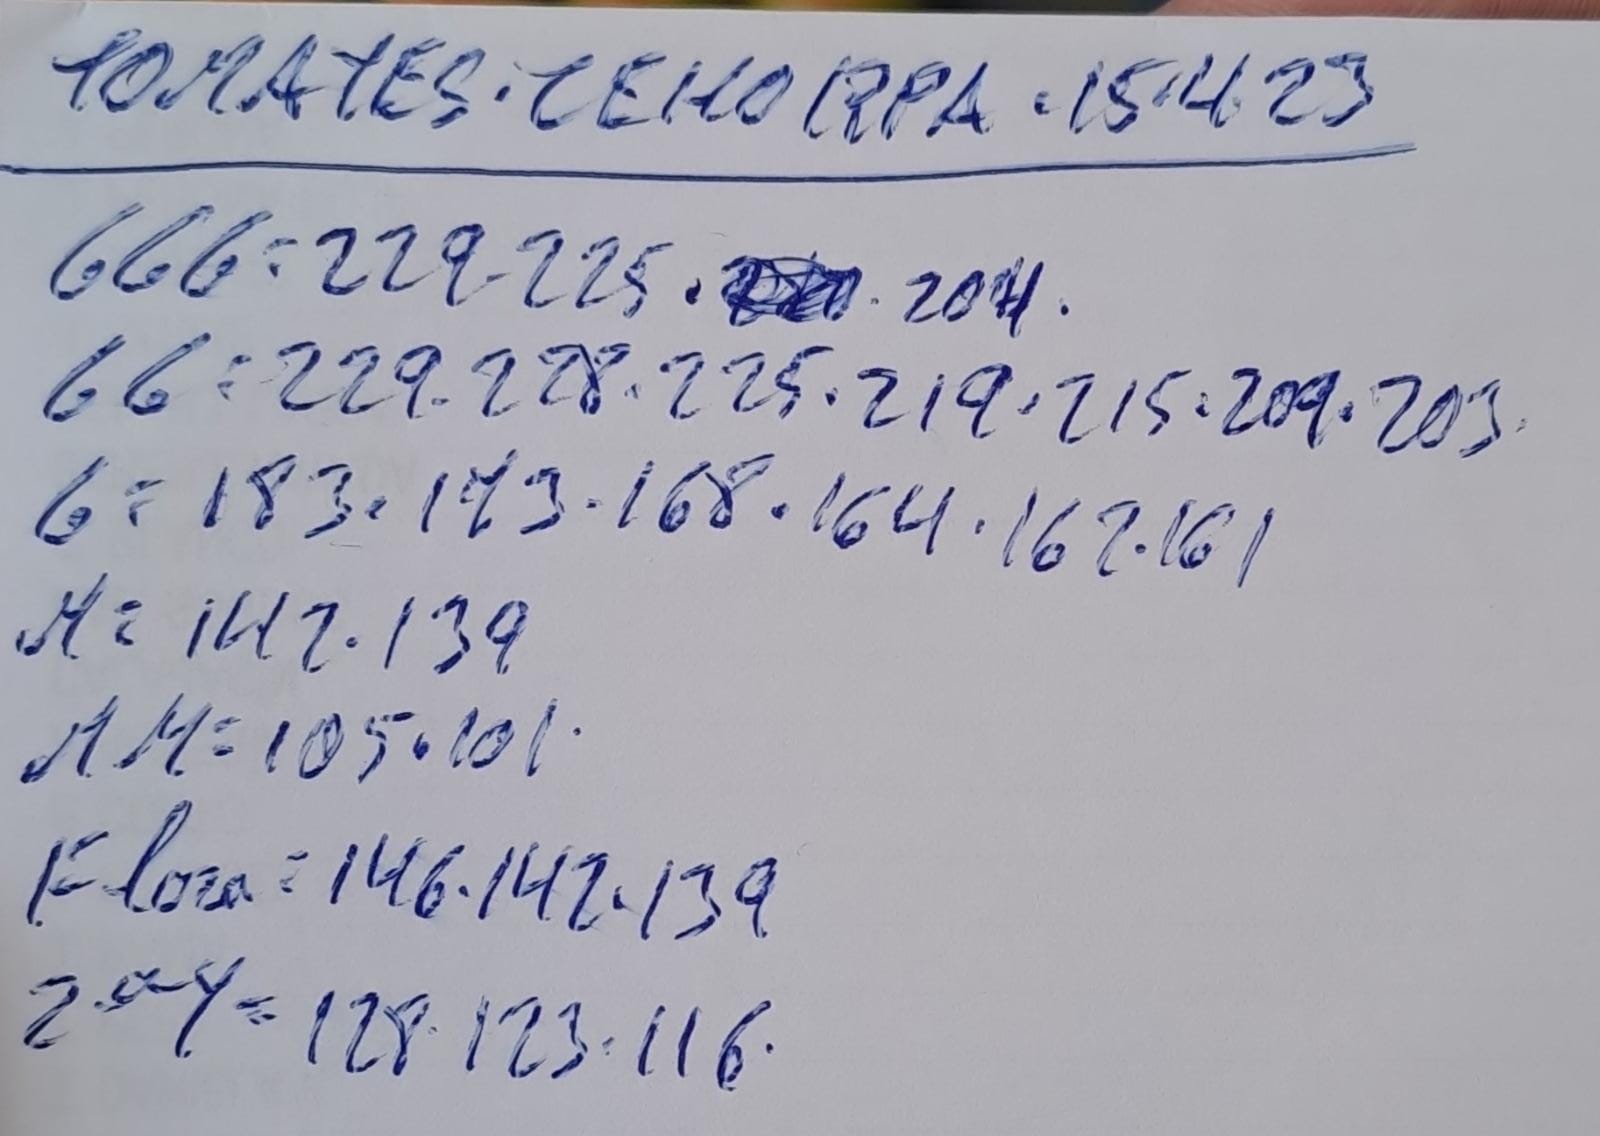 TOMATES·CEHORPA·15·4·23
666=229-225· · 204.
66=229.228.225.219.215.209.203.
6=183.173.168.164.162.161
M=142.139
MM=105.101.
Floza=146.142.139
2ª Y=128.123.116.